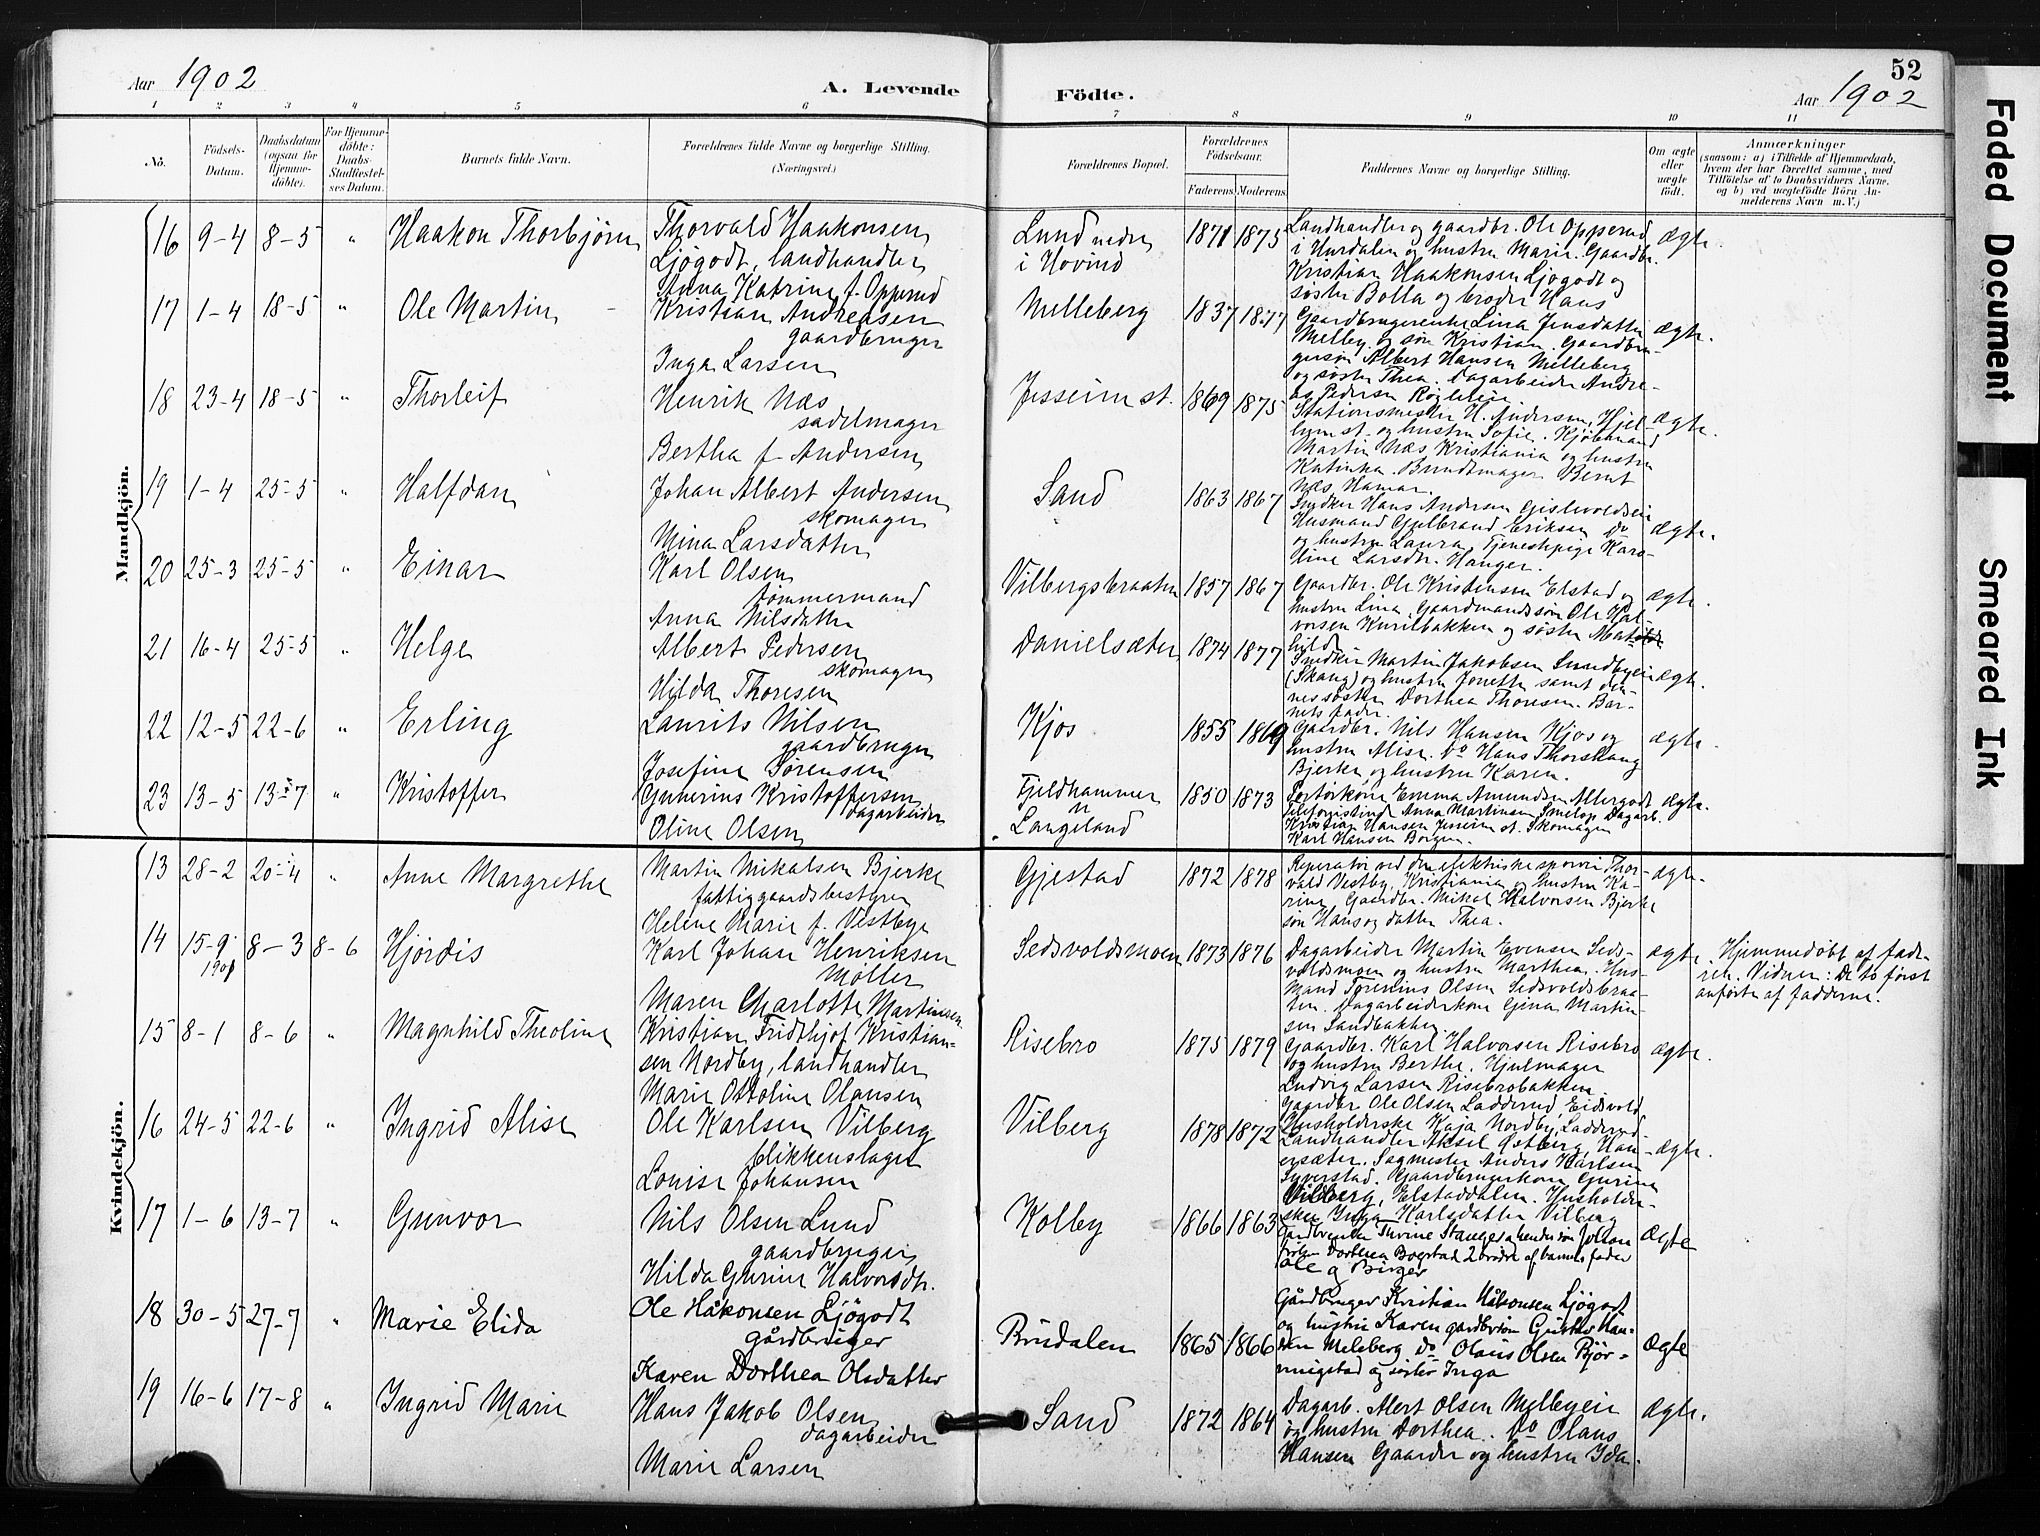 Aar 1902
A. Levende
Födte.
52
Aar 1902
1 2 3 4 5 6 7 8 9 10 11
No.
Födsels-
Datum.
Daabsdatum
(ogsaa for
Hjemme-
döbte).
For Hjemme-
döbte:
Daabs-
Stadfæstel-
ses Datum.
Barnets fulde Navn.
Forældrenes fulde Navne og borgerlige Stilling.
(Næringsvei.)
Forældrenes Bopæl.
Forældrenes
Födselsaar.
Faderens. Moderens.
Faddernes Navne og borgerlige Stilling.
Om ægte
eller
uægte
födt.
Anmærkninger
(saasom: a) i Tilfælde af Hjemmedaab,
hvem der har forrettet samme, med
Tilföielse af to Daabsvidners Navne,
og b) ved uægtefödte Börn An-
melderens Navn m. V.)
Mandkjön.
16 9-4 8-5 " Haakon Thorbjørn
Thorvald Haakonsen
Ljøgodt, landhandler
Anna Katrine f. Opperud
Lund nedre
i Hovind
1871 1875
Landhandler og gaardbr. Ole Opperud
i Hurdalen og hustru Marie. Gaardbr.
Kristian Haakonsen Ljøgodt og
søster Bolla og broder Hans
ægte.
17 1-4 18-5 " Ole Martin
Kristian Andreasen
gaardbruger
Inga Larsen
Melleberg
1837 1877
Gaardbrugerenke Lina Jensdatter
Melby og søn Kristian. Gaardbru-
gersøn Albert Hansen Melleberg
og søster Thea. Dagarbeider Andre-
as Pedersen
ægte.
18 23-4 18-5 " Thorleif
Henrik Næs
sadelmager
Bertha f. Andersen
Jesseim st.
1869 1875
Stationsmester H. Andersen, Hjel-
lum st. og hustru Sofie. Kjøbmand
Martin Næs Kristiania og hustru
Katinka. Bundtmager Bernt
Næs Hamar.
ægte.
19 1-4 25-5 " Halfdan
Johan Albert Andersen
skomager
Mina Larsdatter
Sand
1863 1867
Snedker Hans Andersen Gislevoldseie
Husmand Gulbrand Eriksen Do
og hustru Laura. Tjenestepige Karo-
line Larsdr. Hanger.
ægte.
20 25-3 25-5 " Einar
Karl Olsen
tømmermand
Anna Nilsdatter
Vilbergsbraaten
1857 1867
Gaardbr. Ole Kristensen Elstad og
hustru Lina, Gaardmandssøn Ole Hal-
vorsen Kurilbakken og søster Mat-
hild.
ægte.
21 16-4 25-5 " Helge
Albert Pedersen
skomager
Hilda Thoresen
Danielsæter
1874 1877
Snedker Martin Jakobsen Sundbyeie
(Skaug) og hustru Jonette samt den-
nes søster Dorthea Thoresen. Bar-
nets fader.
ægte.
22 12-5 22-6 " Erling
Laurits Nilsen
gaardbruger
Josefine Sørensen
Kjos
1855 1869
Gaardbr. Nils Hansen Kjos og
hustru Alise. Do Hans Thorshaug
Bjerke og hustru Karen.
ægte.
23 13-5 13-7 " Kristoffer
Gunerius Kristoffersen
dagarbeider
Oline Olsen
Fjeldhammer
n
Langeland
1850 1873
Emma Amundsen Allergodt
Anna Martinsen Smelop Dagarb.
Kristian Hansen Jesseim st. Skomager
Karl Hansen Borgen.
ægte.
Kvindekjön.
13 28-2 20-4 " Anne Margrethe
Martin Mikalsen Bjerke
fattiggaardsbestyrer
Helene Marie f. Vestbye
Gjestad
1872 1878
Reperatør ved den elektriske sporvei Thor-
vald Vestby, Kristiania og hustru Ka-
rine, Gaardbr. Mikal Halvorsen Bjerke
søn Hans og datter Thea.
ægte.
14 15-9 1901 8-3 8-6 Hjørdis
Karl Johan Henriksen
Møller
Maren Charlotte Martinsen
Sedsvoldsmoen
1873 1876
Dagarbeider Martin Evensen Seds-
voldsmoen og hustru Marthea. Hus-
mand Torenius Olsen Sedsvoldsbraa-
ten. Dagarbeiderkone Gina Martin-
sen Sandbakken.
ægte.
Hjemmedøbt af fade-
ren. Vidner: De to først
anførte af fadderne.
15 8-1 8-6 " Magnhild Theoline
Kristian Fridthjof Kristian-
sen Nordby, landhandler
Marie Ottoline Olausen
Risebro
1875 1879
Gaardbr. Karl Halvorsen Risebro
og hustru Berthe. Hjulmager
Ludvig Larsen Risebrobakken.
Gaardbr Ole Olsen Ladderud, Eidsvold
Husholderske Kaja Nordby, Ladderud.
ægte.
16 24-5 22-6 " Ingrid Alise
Ole Karlsen Vilberg
blikkenslager
Louise Johansen
Vilberg
1878 1872
Landhandler Aksel Østberg, Han-
ersæter. Sagmester Anders Karlsen
Syverstad. Gaardbrugerkone Gurine
Vilberg, Elstaddalen. Husholder-
ske Inga Karlsdatter Vilberg
ægte.
17 1-6 13-7 " Gunvor
Nils Olsen Lund
gaardbruger
Hilda Gurine Halvorsdr.
Kolby
1866 1863
Thrine Stanger og hendes søn
Dorthea Bogstad 2 brødre af barnets fader
Ole og Birger
ægte
18 30-5 27-7 " Marie Elida
Ole Håkonsen Ljøgodt
gårdbruger
Karen Dorthea Olsdatter
Brudalen
1865 1866
Gårdbruger Kristian Håkonsen Ljøgodt
og hustru Karen gardbrsøn Gustav Han-
sen Meleberg Do Olaus Olsen Bjør-
ningstad og søster Inga
ægte
19 16-6 17-8 " Ingrid Marie
Hans Jakob Olsen
dagarbeider
Marie Larsen
Sand
1872 1864
Dagarb. Alert Olsen Melbyeie
og hustru Dorthea. Do Olaus
Hansen Gaarder og hustru Ida.
ægte.
Faded Document
Smeared Ink